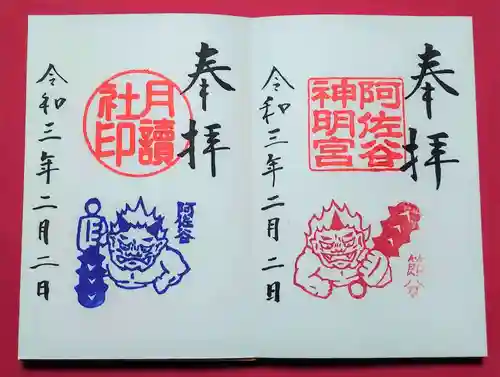 奉拝
阿佐谷
神明宮
令和三年二月二日
節分
奉拝
月讀
社印
阿佐谷
令和三年二月二日